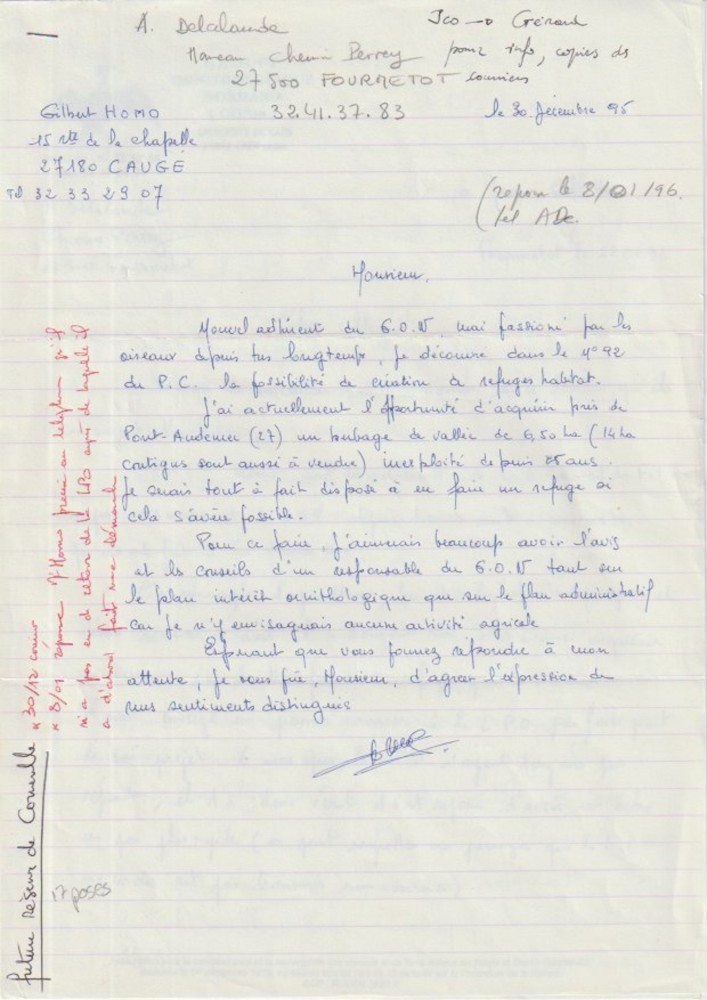 A. Delalande
Hameau Chemin Perrey
27500 FOURMETOT
32.41.37.83
Jco → Gérard
pour info, copies ds
courriers
Gilbert HOMO
15 rte de la chapelle
27180 CAUGE
Tel 32 33 29 07
le 30 Décembre 95
(repon le 8/01/96.
tel ADe.
Monsieur,
Nouvel adhérent du G.O.N, mai passioné par les
oiseaux depuis tres longtemps, je découvre dans le N°92
du P.C. la possibilité de création de refuges habitat.
J'ai actuellement l'opportunité d'acquérir près de
Pont-Audemer (27) un herbage de vallée de 6,50 ha (14 ha
contigus sont aussi à vendre) inexploité depuis 25 ans.
Je serais tout à fait disposé à en faire un refuge si
cela s'avère possible.
Pour ce faire, j'aimerais beaucoup avoir l'avis
et les conseils d'un responsable du G.O.N tant sur
le plan intérêt ornithologique que sur le plan administratif
car je n'y envisagerais aucune activité agricole
Espérant que vous pourrez répondre à mon
attente, je vous prie, Monsieur, d'agréer l'expression de
mes sentiments distingués
future Réserve de Corneville
* 30/12 courrier
* 8/01 réponse M Homo prévenu au téléphone qu'il
n'a pas eu de retour de la LPO auprès de laquelle il
a d'abord fait une démarche
17 poses